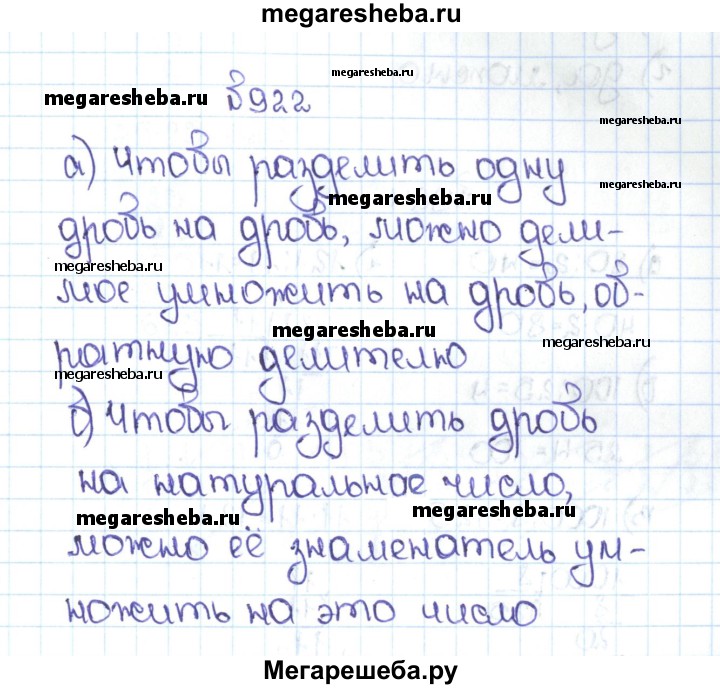 megaresheba.ru
megaresheba.ru
megaresheba.ru №922 megaresheba.ru
а) Чтобы разделить одну
megaresheba.ru
megaresheba.ru
дробь на дробь, можно дели-
megaresheba.ru
мое умножить на дробь, об-
megaresheba.ru
megaresheba.ru
ратную делителю
megaresheba.ru
б) Чтобы разделить дробь
на натуральное число,
megaresheba.ru megaresheba.ru
можно её знаменатель ум-
ножить на это число
Мегарешеба.ру